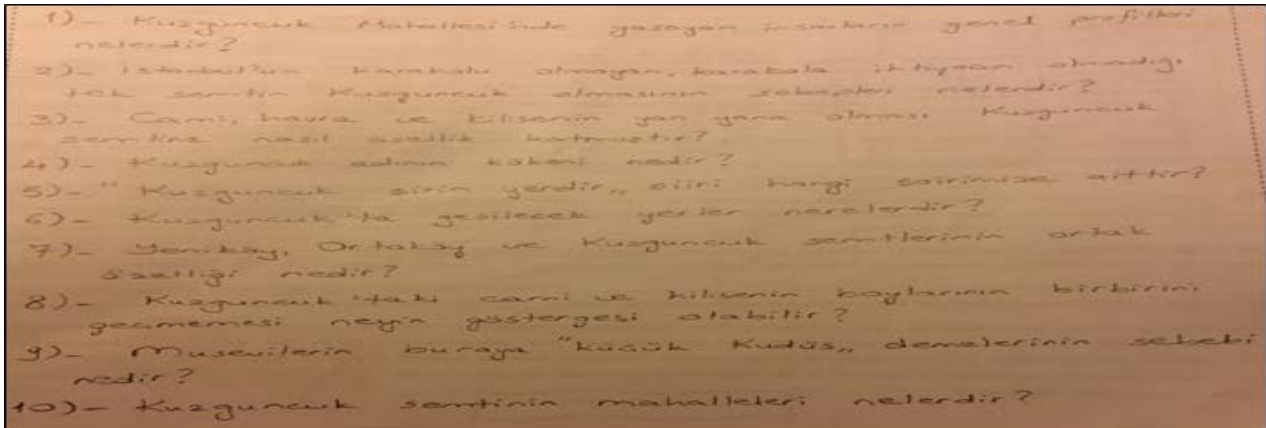 1)- Kuzguncuk Mahallesi'nde yaşayan insanların genel profilleri
nelerdir?
2)- İstanbul'un karakolu olmayan, karakola ihtiyacın olmadığı
tek semtin Kuzguncuk olmasının sebepleri nelerdir?
3)- Cami, havra ve kilisenin yan yana olması Kuzguncuk
semtine nasıl özellik katmıştır?
4)- Kuzguncuk adının kökeni nedir?
5)- "Kuzguncuk şirin yerdir,, şiiri hangi şairimize aittir?
6)- Kuzguncuk'ta gezilecek yerler nerelerdir?
7)- Yeniköy, Ortaköy ve Kuzguncuk semtlerinin ortak
özelliği nedir?
8)- Kuzguncuk'taki cami ve kilisenin boylarının birbirini
geçmemesi neyin göstergesi olabilir?
9)- Musevilerin buraya "küçük Kudüs,, demelerinin sebebi
nedir?
10)- Kuzguncuk semtinin mahalleleri nelerdir?